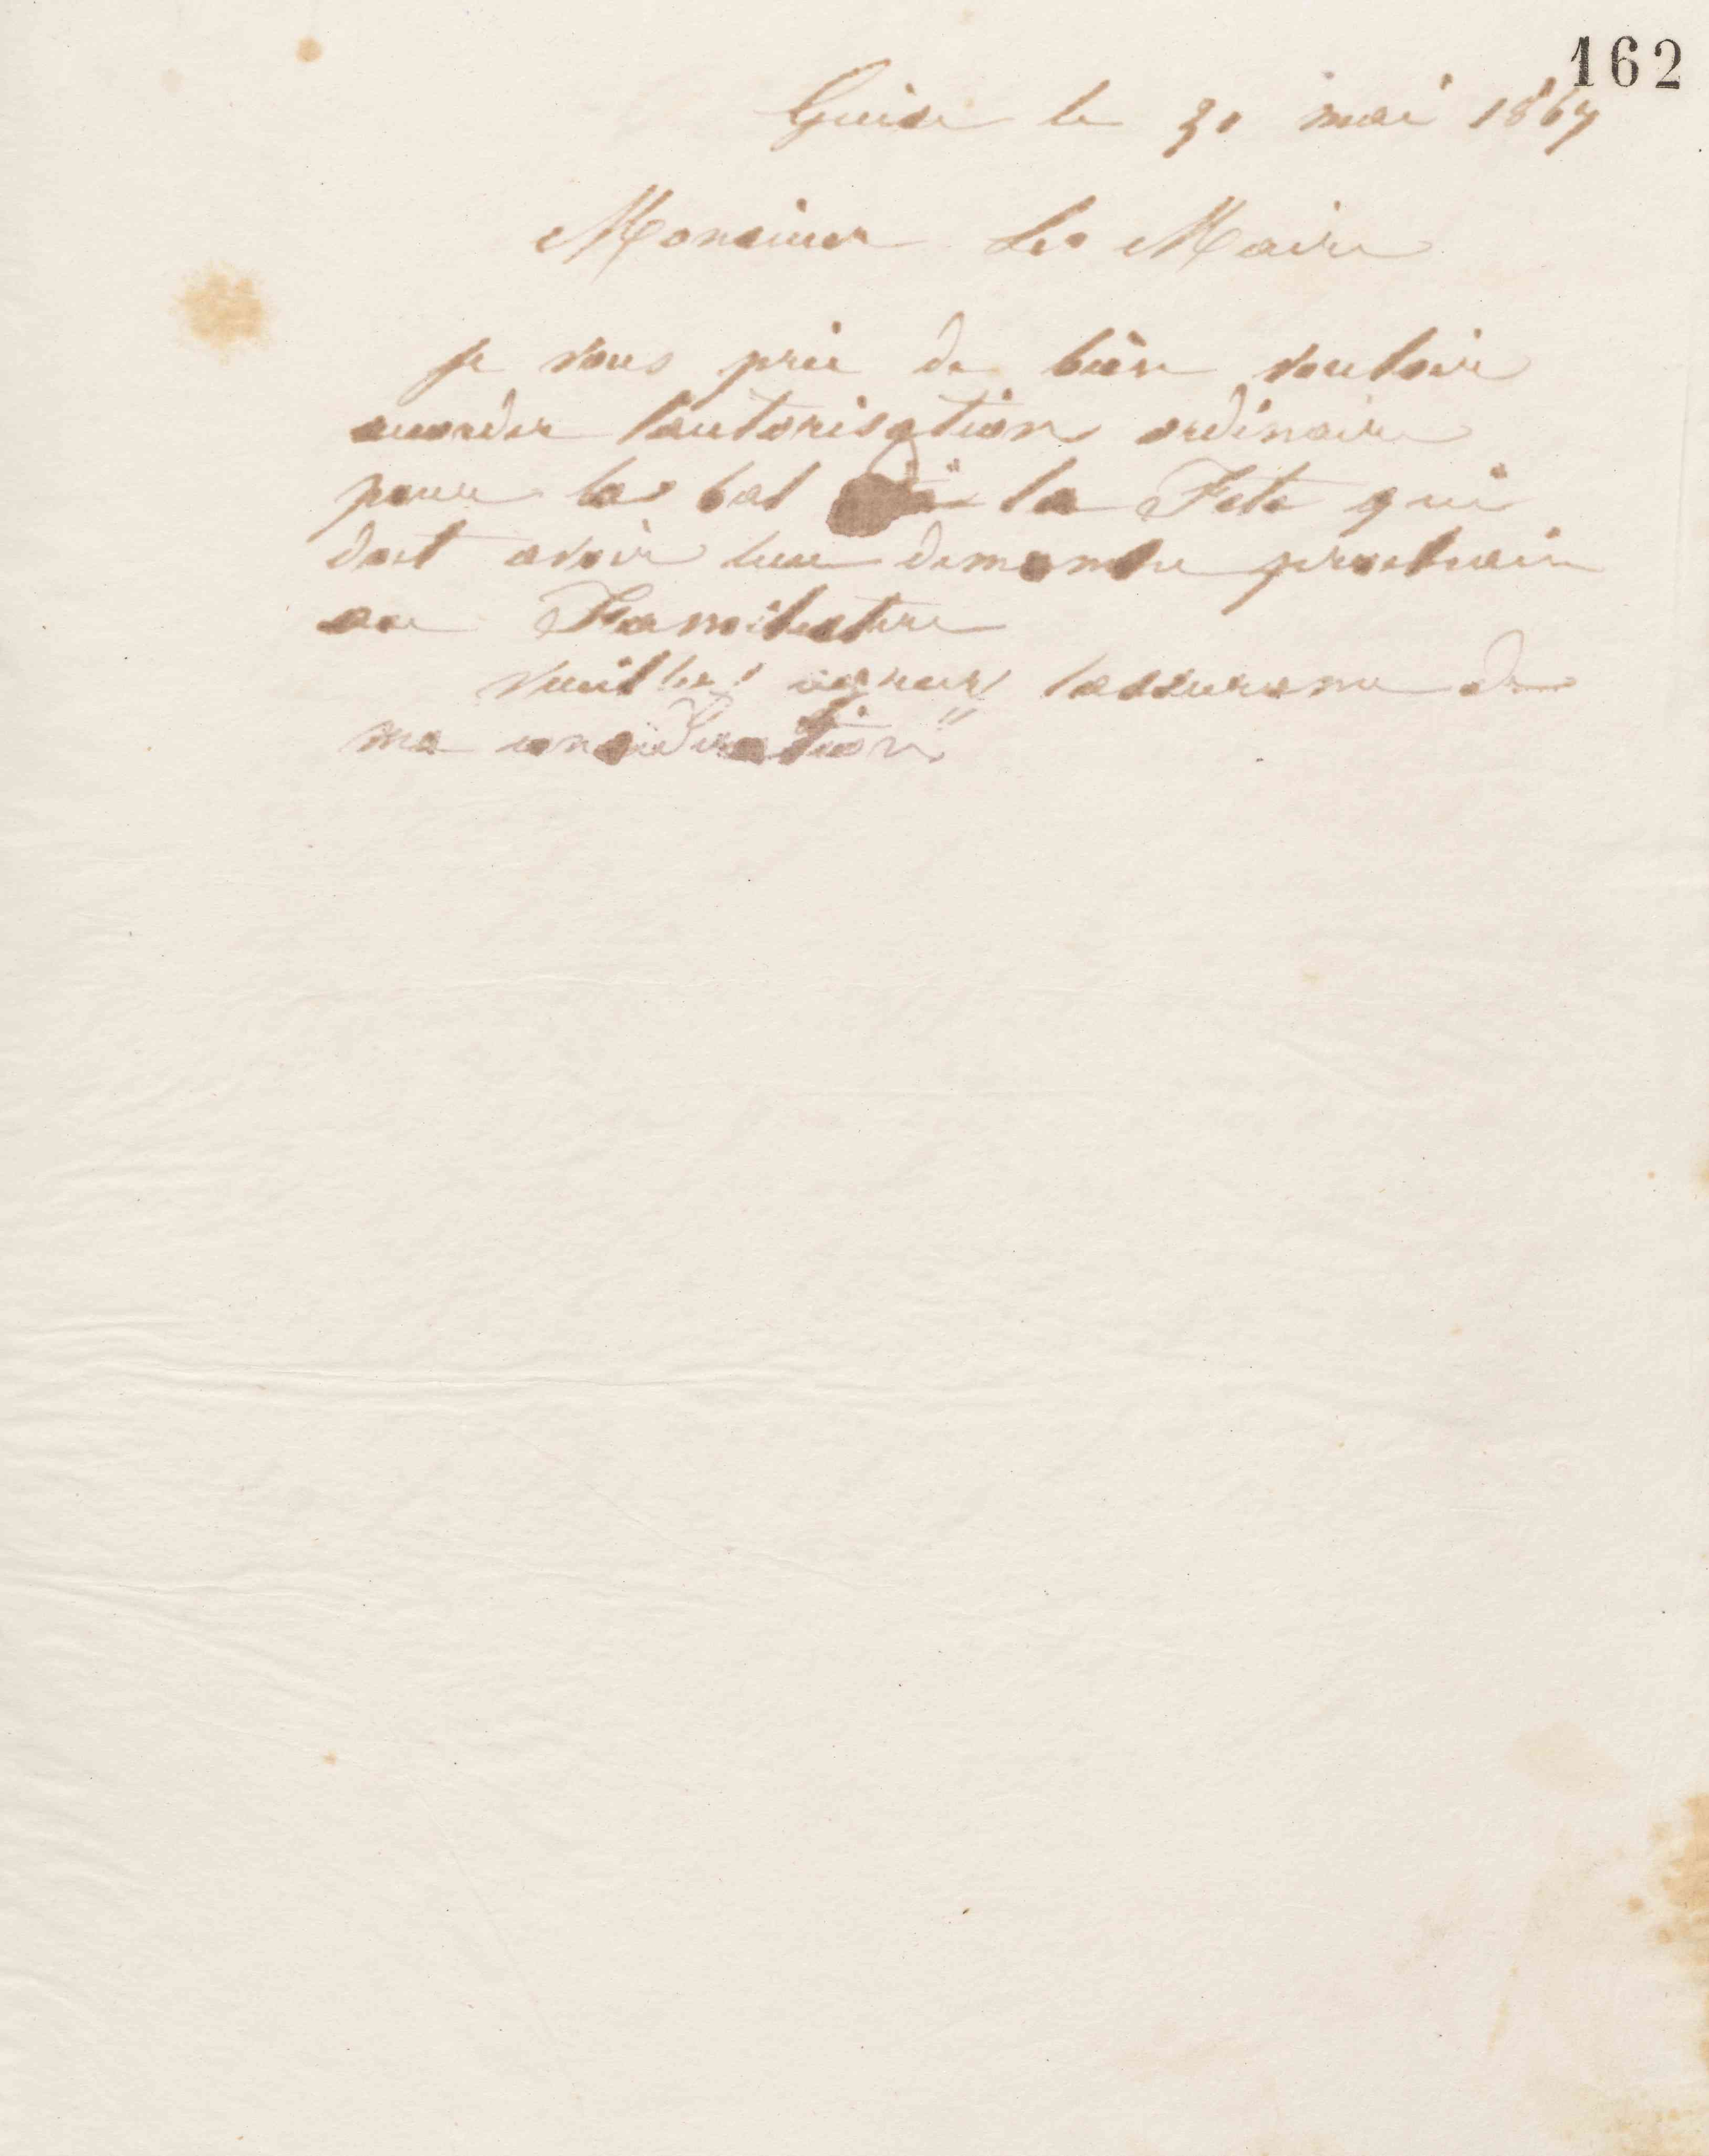 162
Guise le 30 mai 1867
Monsieur Le Maire
je vous prie de bien vouloir
accorder l'autorisation ordinaire
pour le bal la Fete qui
doit avoir lieu dimanche prochain
au Familistère
veuillez agréer l'assurance de
ma considération